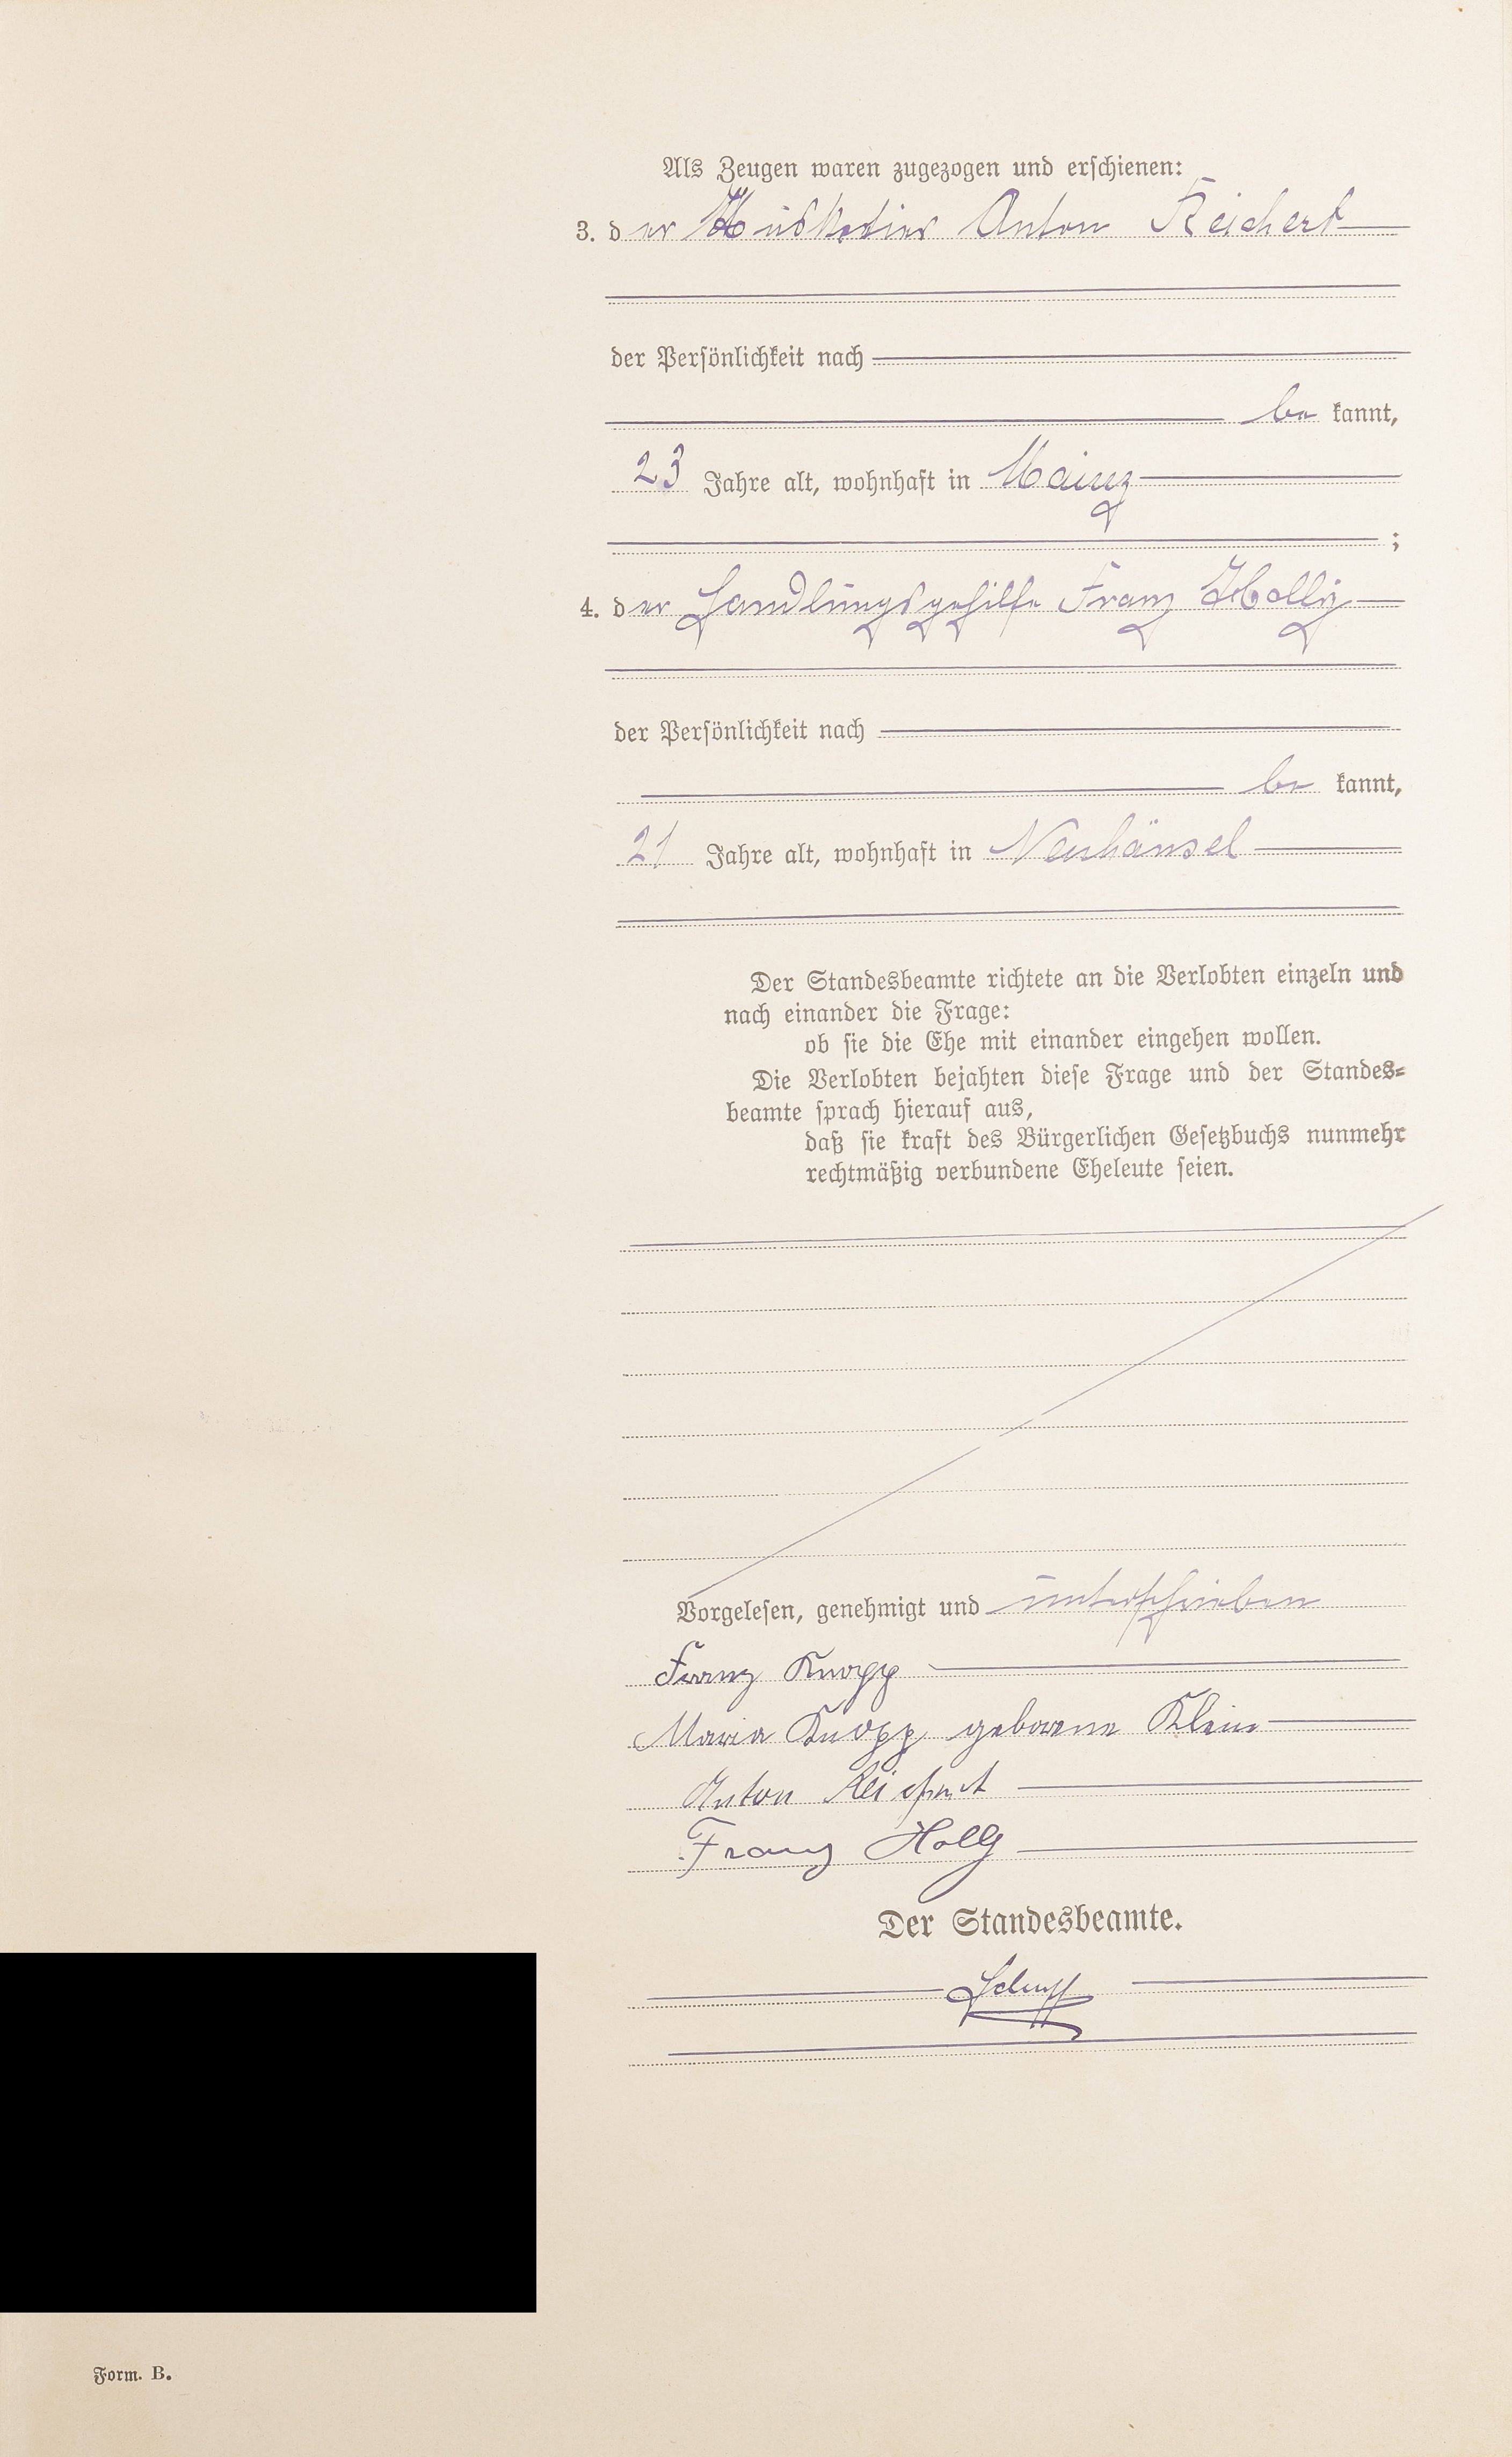 Als Zeugen waren zugezogen und erschienen:
3. der Musketier Anton Reichert
der Persönlichkeit nach
be kannt,
23 Jahre alt, wohnhaft in Mainz
;
4. der Handlungsgehilfe Franz Holly
der Persönlichkeit nach
be kannt,
21 Jahre alt, wohnhaft in Neuhäusel
Der Standesbeamte richtete an die Verlobten einzeln und
nach einander die Frage:
ob sie die Ehe mit einander eingehen wollen.
Die Verlobten bejahten diese Frage und der Standes-
beamte sprach hierauf aus,
daß sie kraft des Bürgerlichen Gesetzbuchs nunmehr
rechtmäßig verbundene Eheleute seien.
Vorgelesen, genehmigt und unterschrieben
Franz Knopp
Maria Knopp geborene Klein
Anton Reichert
Franz Holly
Der Standesbeamte.
Form. B.